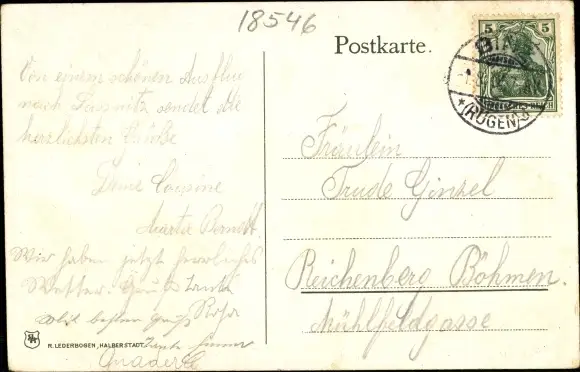 18546
Postkarte.
5 5
BINZ
(RÜGEN)
Von einem schönen Ausflug
nach Sassnitz sendet die
herzlichsten Grüße
Deine Cousine
Marta Berndt
Wir haben jetzt herrliches
Wetter. Gruß Tante
Rosa
Fräulein
Trude Ginzel
Reichenberg Böhmen.
Mühlfeldgasse
R. LEDERBOGEN, HALBERSTADT